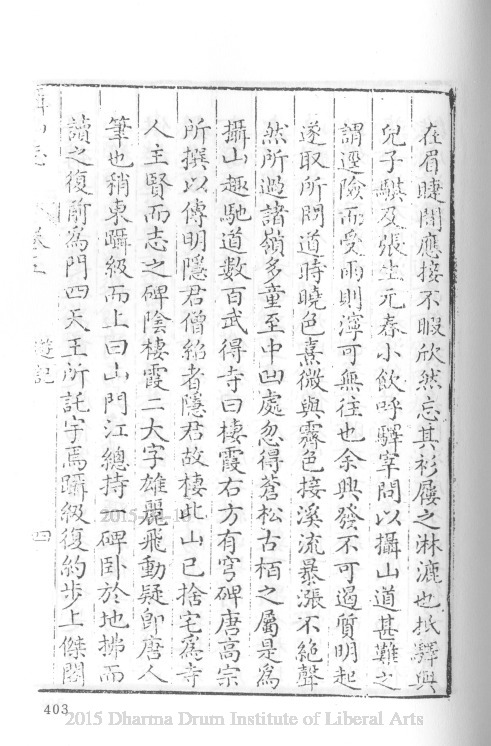 在眉睫間應接不暇欣然忘其衫屨之淋漉也抵驛與
兒子騏及張生元春小飲呼驛宰問以攝山道甚難之
謂遝險而受雨則濘可無往也余興發不可遏質明起
遂取所問道時曉色熹微與霽色接溪流暴漲不絕聲
然所過諸嶺多童至中凹處忽得蒼松古栢之屬是為
攝山趣馳道數百武得寺曰棲霞右方有穹碑唐高宗
所撰以傳明隱君僧紹者隱君故棲此山已捨宅為寺
人主賢而志之碑陰棲霞二大字雄麗飛動疑卽唐人
筆也稍東躡級而上曰山門江總持一碑卧於地掃而
讀之復前為門四天王所託宇焉躡級復約步上傑閣
遊記
四
403
2015 Dharma Drum Institute of Liberal Arts